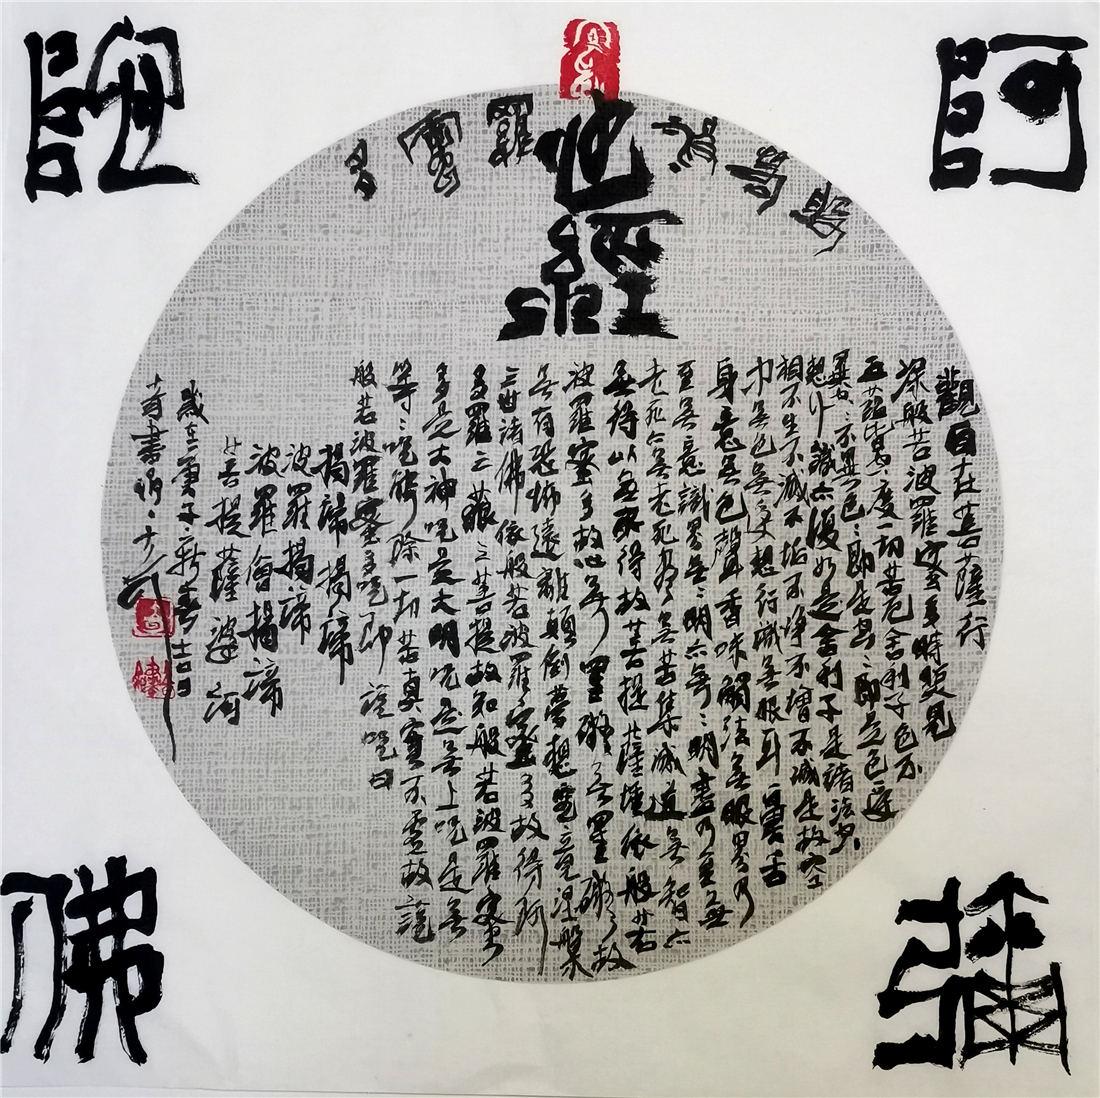 阿
彌
陀
佛
般若波羅蜜多
心經
觀自在菩薩行
深般若波羅蜜多時照見
五蘊皆空度一切苦厄舍利子色不
異空空不異色色即是空空即是色受
想行識亦復如是舍利子是諸法空
相不生不滅不垢不淨不增不減是故空
中無色無受想行識無眼耳鼻舌
身意無色聲香味觸法無眼界乃
至無意識界無無明亦無無明盡乃至無
老死亦無老死盡無苦集滅道無智亦
無得以無所得故菩提薩埵依般若
波羅蜜多故心無罣礙無罣礙故
無有恐怖遠離顛倒夢想究竟涅槃
三世諸佛依般若波羅蜜多故得阿
多羅三藐三菩提故知般若波羅蜜
多是大神咒是大明咒是無上咒是無
等等咒能除一切苦真實不虛故說
般若波羅蜜多咒即說咒曰
揭諦揭諦
波羅揭諦
波羅僧揭諦
菩提薩婆訶
歲在庚子新春